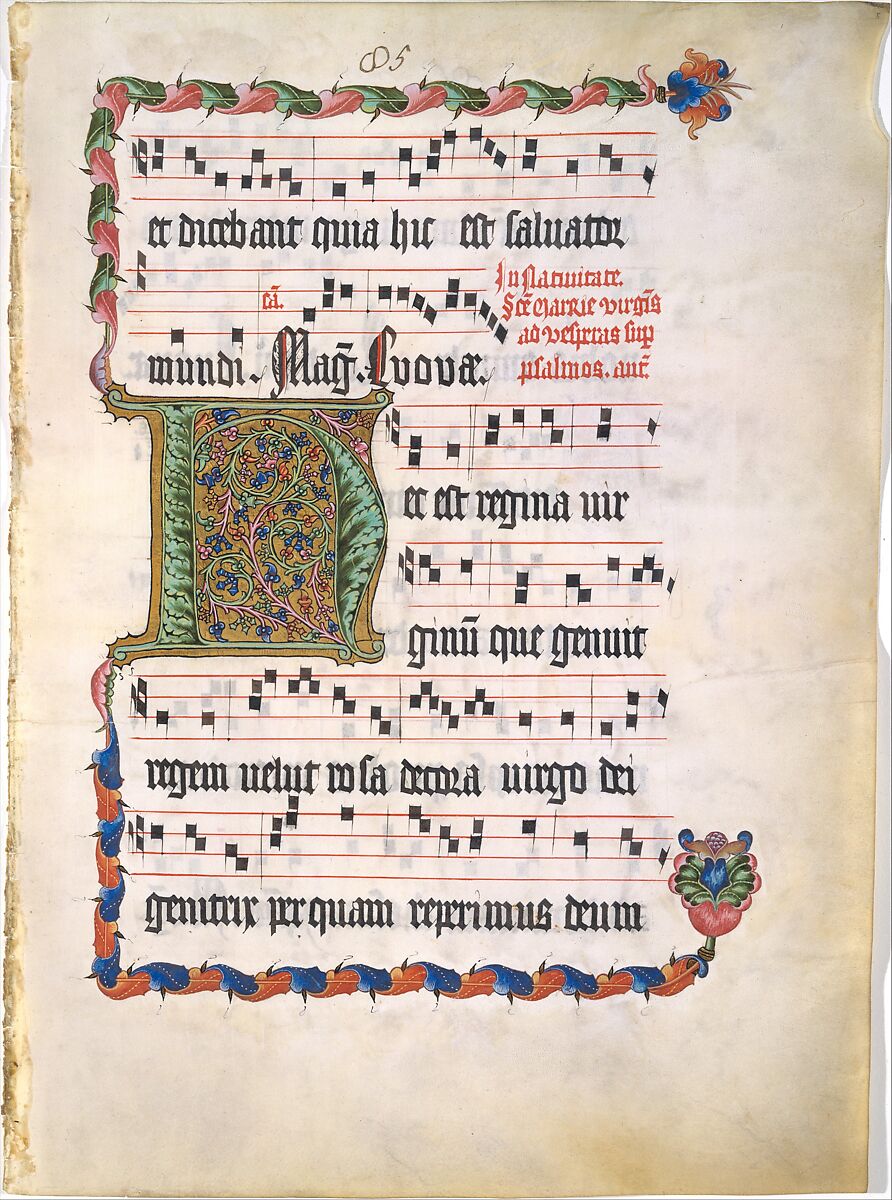 85
et dicebant quia hic est saluator
cã.
In Natiuitate.
Scẽ Marie virgĩs
ad vesperas sup
psalmos. ant̃.
mundi. Mag̃. Evovæ.
Hec est regina uir
ginũ que genuit
regem uelut rosa decora uirgo dei
genitrix per quam reperimus deum